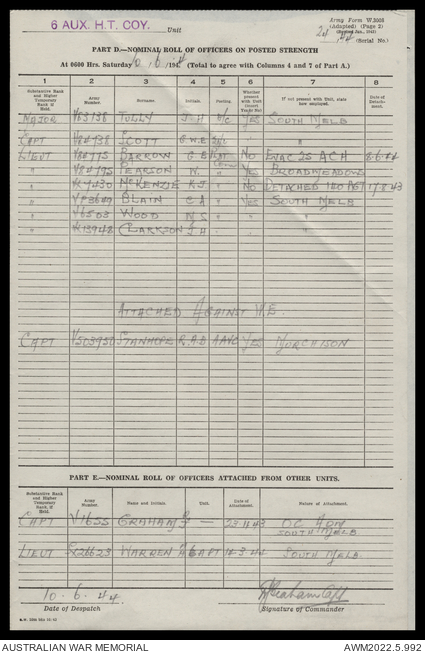 6 AUX. H.T. COY.
Unit
Army Form W.3008
(Adapted) (Page 2)
(Revised Jan., 1943)
(Serial No.)
PART D.—NOMINAL ROLL OF OFFICERS ON POSTED STRENGTH
At 0600 Hrs. Saturday 10.6.1944 (Total to agree with Columns 4 and 7 of Part A.)
1 2 3 4 5 6 7 8
Substantive Rank and Higher Temporary Rank if Held. Army Number. Surname Initials Posting Whether present with Unit (Insert Yes or No) If not present with Unit, state how employed. Date of Detachment.
MAJOR V63138 TULLY J.H O/C YES SOUTH MELB
CAPT V84938 SCOTT G.W.E
LIEUT BARROW G B NO EVAC 25 ACH 8.6.44
" V84795 PEARSON N. YES BROADMEADOWS
" McKENZIE K.J. NO DETACHED 17.8.43
" BLAIN C A YES SOUTH MELB
" V6503 WOOD N S
" CLARKSON J.H
ATTACHED AGAINST W.E.
CAPT V503950 STANHOPE R.A.D AAVC YES MURCHISON
PART E.—NOMINAL ROLL OF OFFICERS ATTACHED FROM OTHER UNITS.
Substantive Rank and Higher Temporary Rank if Held. Army Number. Name and Initials. Unit. Date of Attachment. Nature of Attachment.
CAPT V1655 GRAHAM — 23.11.43 OC ADM
SOUTH MELB
LIEUT WARREN SOUTH MELB.
10.6.44
Date of Despatch
Signature of Commander
AUSTRALIAN WAR MEMORIAL
AWM2022.5.992